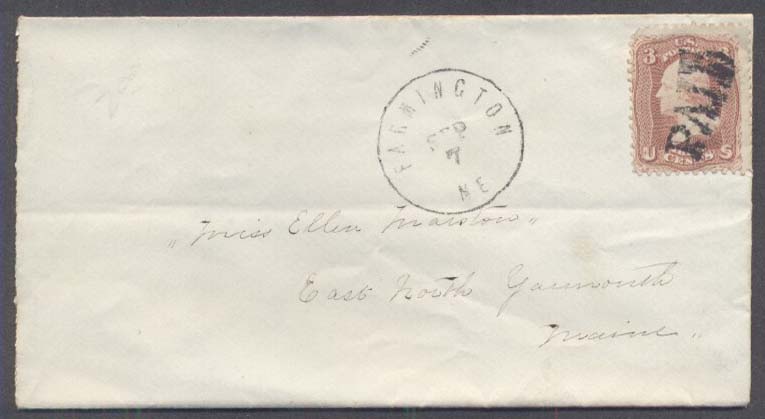 U.S. POSTAGE
3 3
U CENTS S
PAID
FARMINGTON
SEP
7
ME
" Miss Ellen Marston "
East North Yarmouth
Maine "